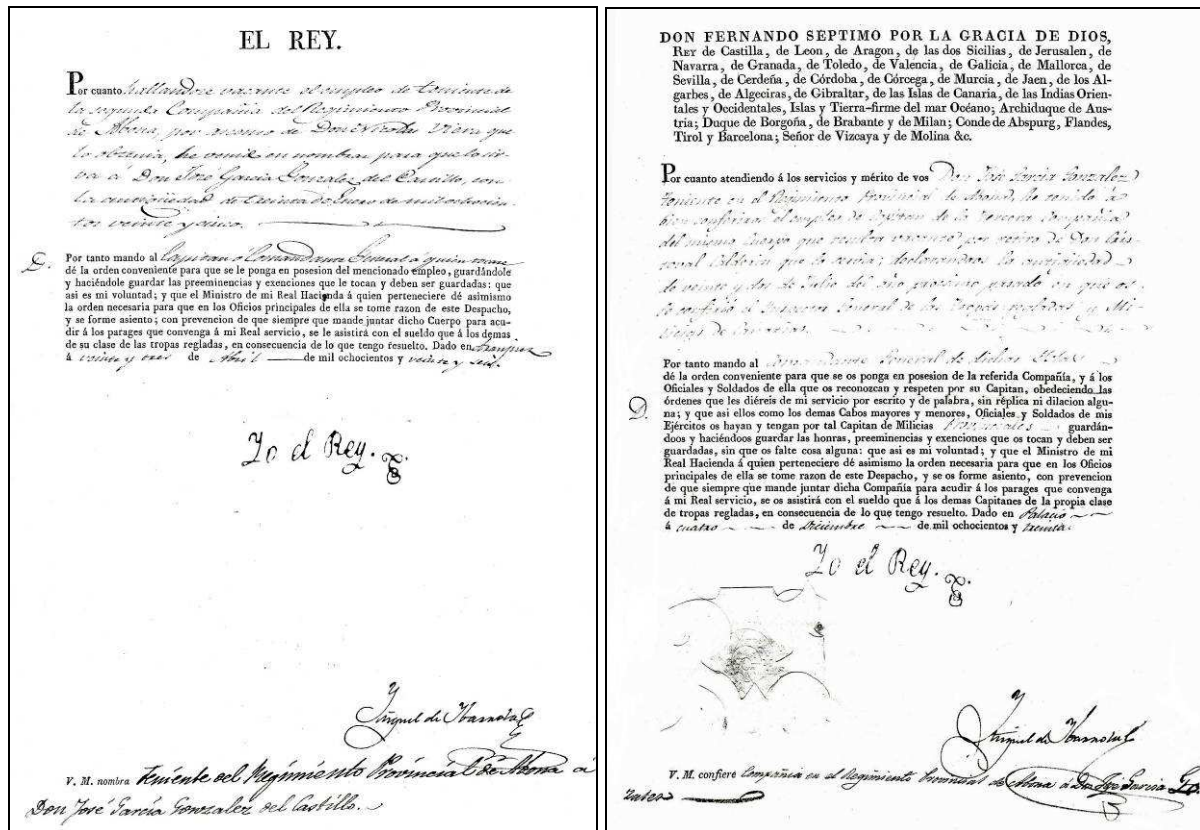 EL REY.
Por cuanto hallandose vacante el empleo de teniente de
la segunda Compañia del Regimiento Provincial
de Abona, por ascenso de Don Nicolas Viera que
lo obtenia, he venido en nombrar para que lo sir-
va á Don José Garcia Gonzalez del Castillo, con
la antigüedad de treinta de Enero de mil ochocien-
tos veinte y cinco.
D.
Por tanto mando al Capitan ó Comandante General a quien tocare
dé la orden conveniente para que se le ponga en posesion del mencionado empleo, guardándole
y haciéndole guardar las preeminencias y exenciones que le tocan y deben ser guardadas: que
asi es mi voluntad; y que el Ministro de mi Real Hacienda á quien perteneciere dé asimismo
la orden necesaria para que en los Oficios principales de ella se tome razon de este Despacho,
y se forme asiento; con prevencion de que siempre que mande juntar dicho Cuerpo para acu-
dir á los parages que convenga á mi Real servicio, se le asistirá con el sueldo que á los demas
de su clase de las tropas regladas, en consecuencia de lo que tengo resuelto. Dado en Aranjuez
á veinte y tres de Abril de mil ochocientos y veinte y seis.
Yo el Rey.
Miguel de Ibarrola
V. M. nombra Teniente del Regimiento Provincial de Abona á
Don José García Gonzalez del Castillo.
DON FERNANDO SEPTIMO POR LA GRACIA DE DIOS,
REY de Castilla, de Leon, de Aragon, de las dos Sicilias, de Jerusalen, de
Navarra, de Granada, de Toledo, de Valencia, de Galicia, de Mallorca, de
Sevilla, de Cerdeña, de Córdoba, de Córcega, de Murcia, de Jaen, de los Al-
garbes, de Algeciras, de Gibraltar, de las Islas de Canaria, de las Indias Orien-
tales y Occidentales, Islas y Tierra-firme del mar Océano; Archiduque de Aus-
tria; Duque de Borgoña, de Brabante y de Milan; Conde de Abspurg, Flandes,
Tirol y Barcelona; Señor de Vizcaya y de Molina &c.
Por cuanto atendiendo á los servicios y mérito de vos Don José Garcia Gonzalez
teniente en el Regimiento Provincial de Abona, he venido á
bien conferiros el empleo de Capitan de la tercera Compañia
del mismo Cuerpo que resulta vacante por retiro de Don Cris-
toval Calderin que la servia; declarandoos la antigüedad
de veinte y dos de Julio del año proximo pasado en que os
lo confirió el Inspector General de las Tropas regladas y Mi-
licias de Canarias.
D.
Por tanto mando al Comandante General de dichas Islas
dé la orden conveniente para que se os ponga en posesion de la referida Compañía, y á los
Oficiales y Soldados de ella que os reconozcan y respeten por su Capitan, obedeciendo las
órdenes que les diéreis de mi servicio por escrito y de palabra, sin réplica ni dilacion algu-
na; y que asi ellos como los demas Cabos mayores y menores, Oficiales y Soldados de mis
Ejércitos os hayan y tengan por tal Capitan de Milicias Provinciales guardán-
doos y haciéndoos guardar las honras, preeminencias y exenciones que os tocan y deben ser
guardadas, sin que os falte cosa alguna: que asi es mi voluntad; y que el Ministro de mi
Real Hacienda á quien perteneciere dé asimismo la orden necesaria para que en los Oficios
principales de ella se tome razon de este Despacho, y se os forme asiento, con prevencion
de que siempre que mande juntar dicha Compañía para acudir á los parages que convenga
á mi Real servicio, se os asistirá con el sueldo que á los demas Capitanes de la propia clase
de tropas regladas, en consecuencia de lo que tengo resuelto. Dado en Palacio
á cuatro de Diciembre de mil ochocientos y treinta.
Yo el Rey.
Miguel de Ibarrola
V. M. confiere Compañia en el Regimiento Provincial de Abona á Don José Garcia Gon-
zalez